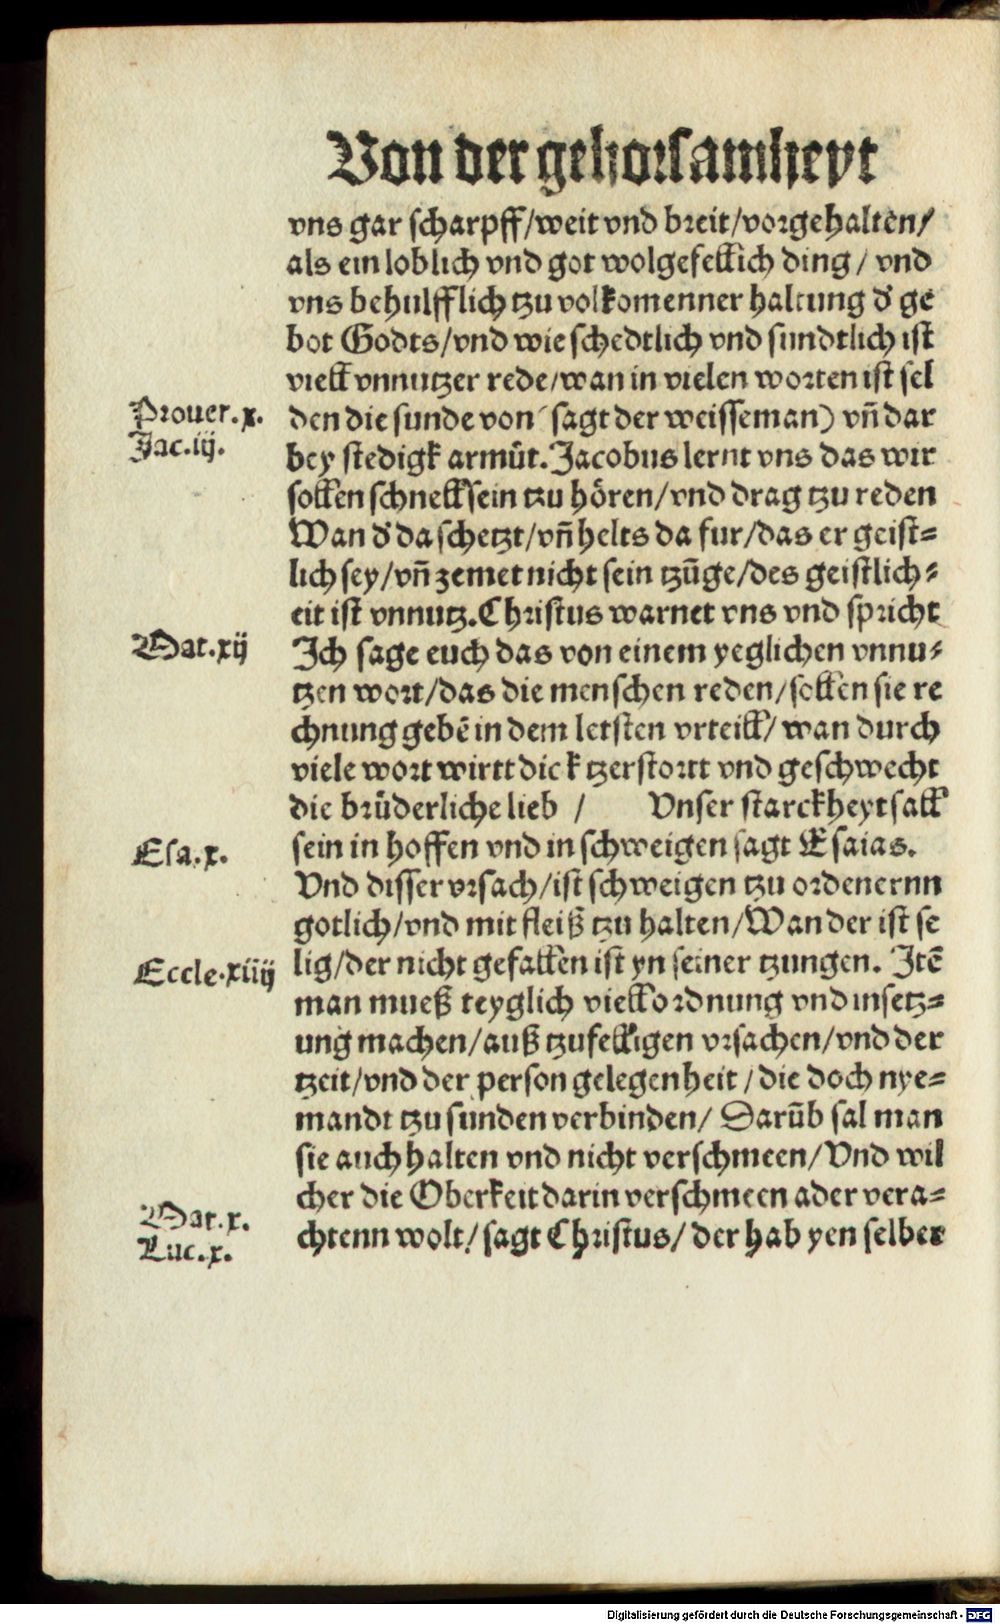 Von der gehorsamheyt
vns gar scharpff/weit vnd breit/vorgehalten/
als ein loblich vnd got wolgefellich ding/ vnd
vns behulfflich tzu volkomenner haltung d' ge
bot Godts/vnd wie schedtlich vnd sundtlich ist
viell vnnutzer rede/wan in vielen worten ist sel
Prouer.x.
den die sunde von (sagt der weisseman) vñ dar
Jac.iij.
bey stedigk armůt. Jacobus lernt vns das wir
sollen schnell sein tzu hören/vnd drag tzu reden
Wan d' da schetzt/vñ helts da fur/das er geist=
lich sey/vñ zemet nicht sein tzüge/des geistlich=
eit ist vnnutz. Christus warnet vns vnd spricht
Mat.xij
Ich sage euch das von einem yeglichen vnnu=
tzen wort/das die menschen reden/sollen sie re
chnung gebē in dem letsten vrteill/ wan durch
viele wort wirtt dick tzerstortt vnd geschwecht
die brüderliche lieb / Vnser starckheyt sall
Esa.x.
sein in hoffen vnd in schweigen sagt Esaias.
Vnd disser vrsach/ist schweigen tzu ordenernn
gotlich/vnd mit fleiß tzu halten/Wan der ist se
Eccle.xiiij
lig/der nicht gefallen ist yn seiner tzungen. Itē
man mueß teyglich viell ordnung vnd insetz=
ung machen/auß tzufelligen vrsachen/vnd der
tzeit/vnd der person gelegenheit/die doch nye=
mandt tzu sunden verbinden/ Darüb sal man
sie auch halten vnd nicht verschmeen/Vnd wil
cher die Oberkeit darin verschmeen ader vera=
Mat.x.
chtenn wolt/ sagt Christus/ der hab yen selber
Luc.x.
Digitalisierung gefördert durch die Deutsche Forschungsgemeinschaft - DFG